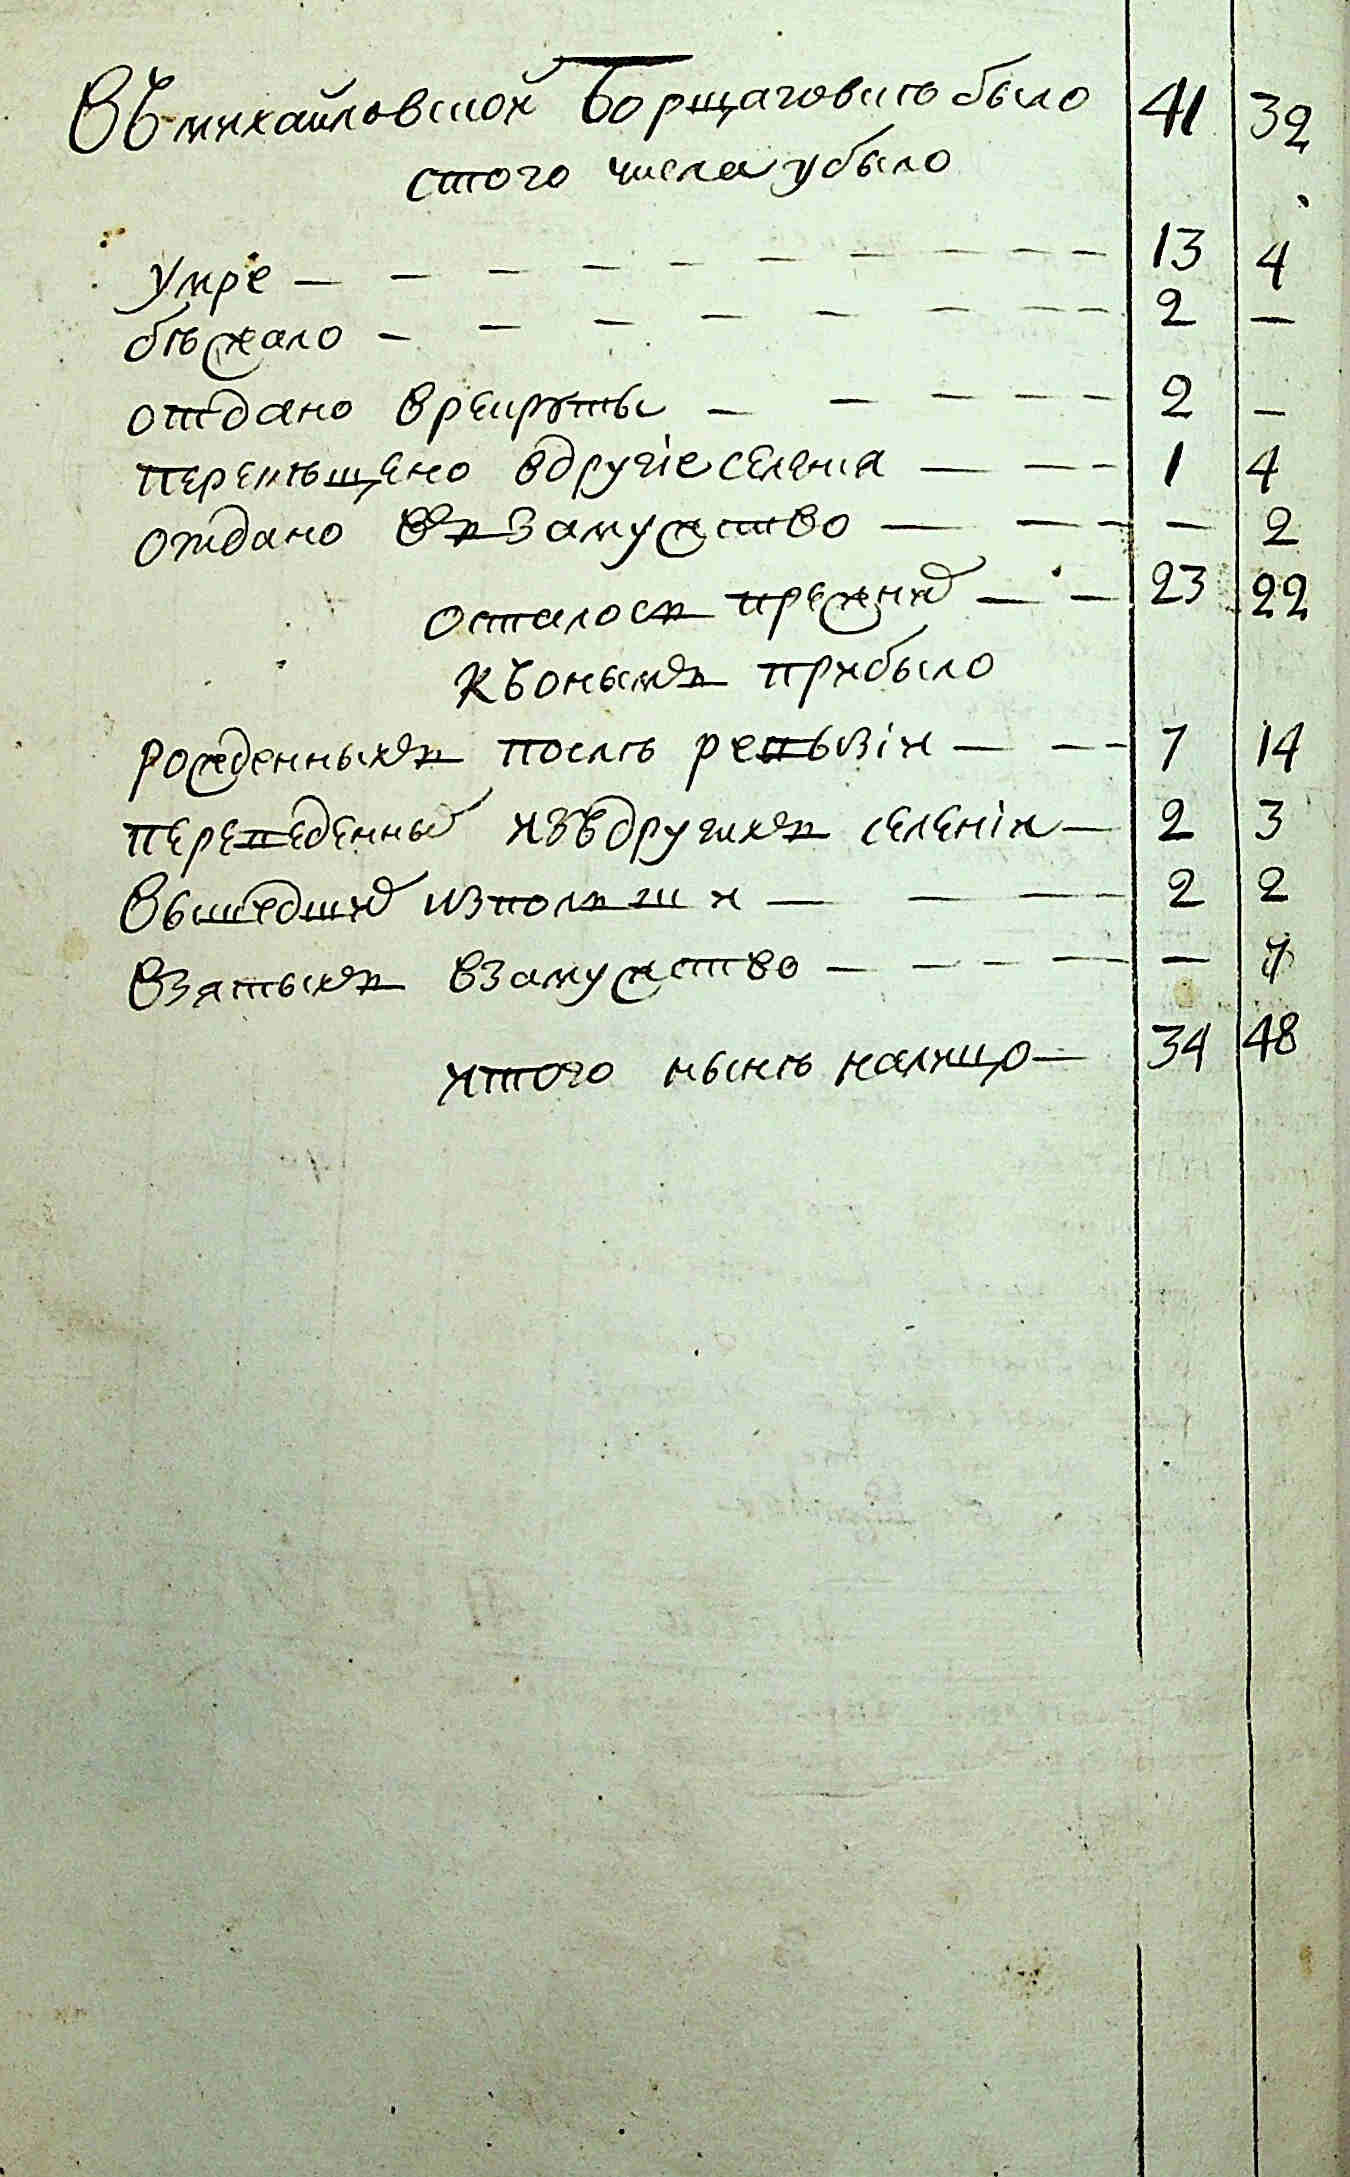 Въ михайловской Борщаговкѣ было 41 32
с того числа убыло
умре — — — — — — — — — 13 4
бѣжало — — — — — — — — 2 —
отдано в рекруты — — — — — 2 —
перемѣщено в другіе селенія — — — 1 4
отдано въ замужство — — — — 2
осталось прежнихъ — — 23 22
къ онымъ прибыло
рожденныхъ послѣ ревизіи — — — 7 14
переведенныхъ изъ другихъ селеніи — 2 3
вышедшихъ изъ польши — — — — 2 2
взятыхъ в замужство — — — — — — 7
итого нынѣ налицо — 34 48